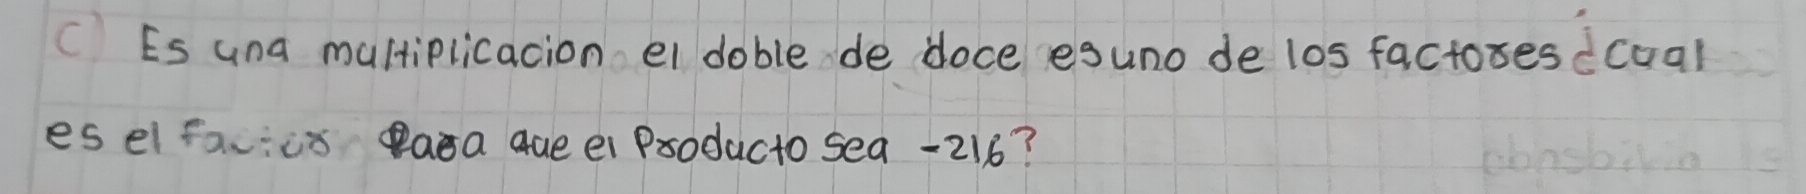 c) Es una multiplicacion el doble de doce es uno de los factores ¿cual
es el factor para que el producto sea -216?